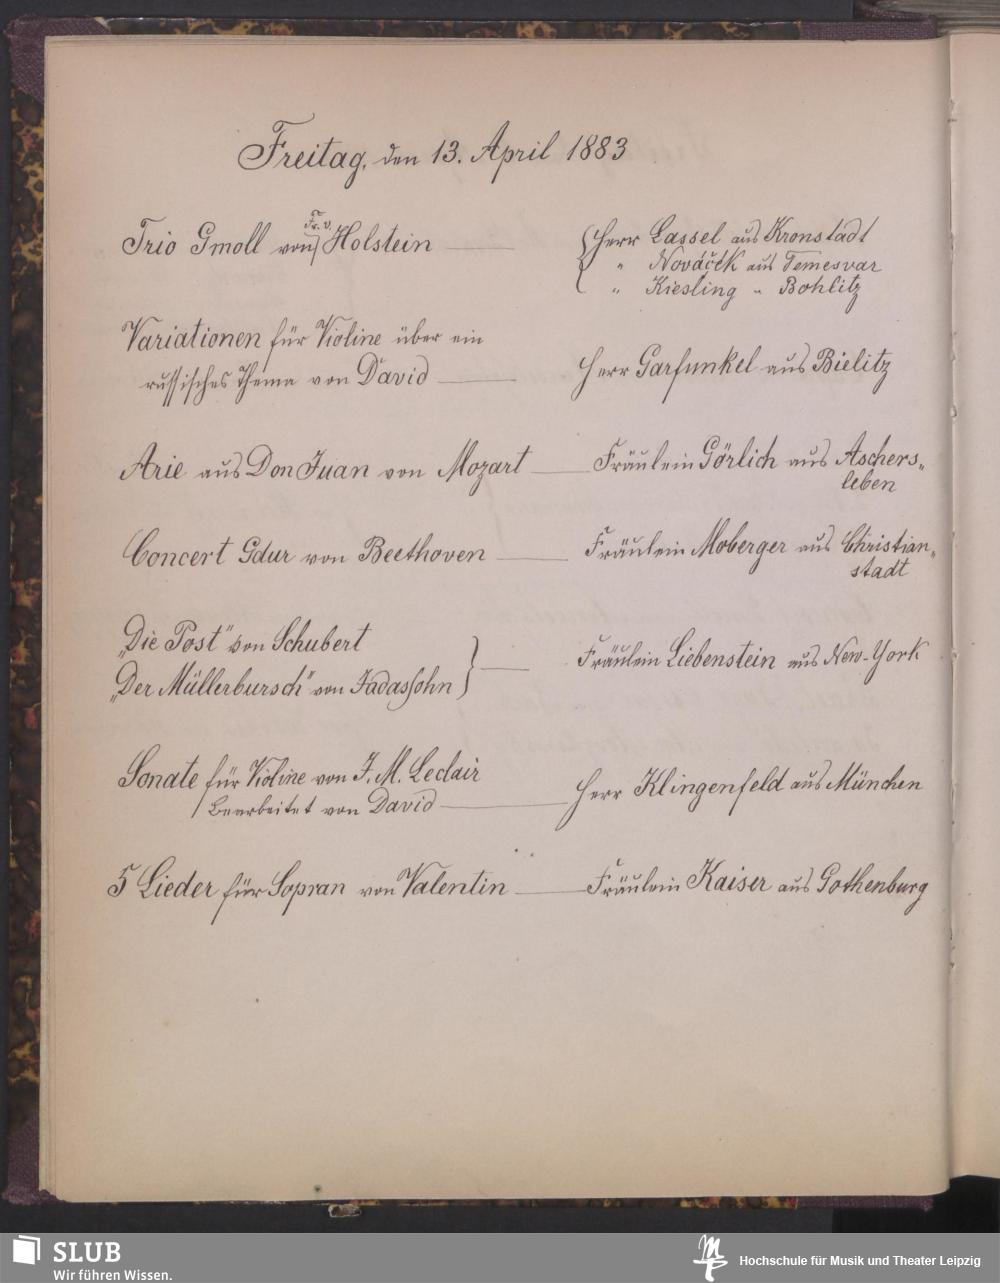 Freitag, den 13. April 1883
Trio Gmoll von Fr. v. Holstein
Herr Lassel aus Kronstadt
" Nováček aus Temesvar
" Kiesling " Bohlitz
Variationen für Violine über ein
russisches Thema von David
Herr Garfunkel aus Bielitz
Arie aus Don Juan von Mozart
Fräulein Görlich aus Aschers-
leben
Concert Gdur von Beethoven
Fräulein Moberger aus Christian-
stadt
„Die Post" von Schubert
„Der Müllerbursch" von Jadassohn
Fräulein Liebenstein aus New-York
Sonate für Violine von J. M. Leclair
Bearbeitet von David
Herr Klingenfeld aus München
5 Lieder für Sopran von Valentin
Fräulein Kaiser aus Gothenburg
SLUB
Wir führen Wissen.
Hochschule für Musik und Theater Leipzig